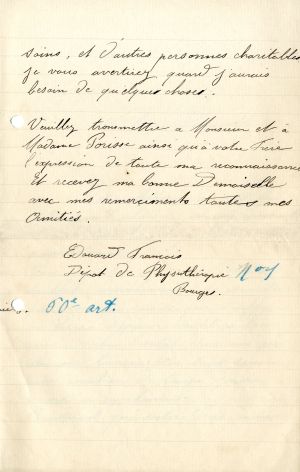 soins, et d'autres personnes charitables
je vous avertirez quand j'aurais
besoin de quelques choses.
Veuillez transmettre a Monsieur et à
Madame Porisse ainsi qu'à votre Frère
l'expression de toute ma reconnaissance
Et recevez ma bonne Demoiselle
avec mes remerciments toutes mes
Amitiés.
Edouard Francois
Dépot de Physiothérapie
Bourges.
50e art.